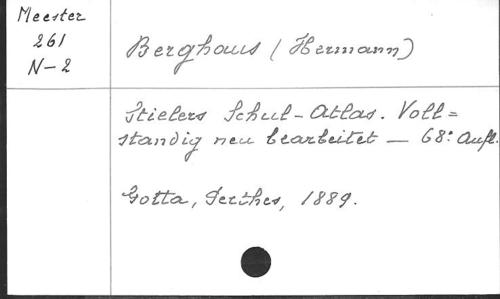 Meester
261
N-2
Berghaus (Hermann)
Stielers Schul-Atlas. Voll=
standig neu bearbeitet - 68: Aufl.
Gotta, Perthes, 1889.